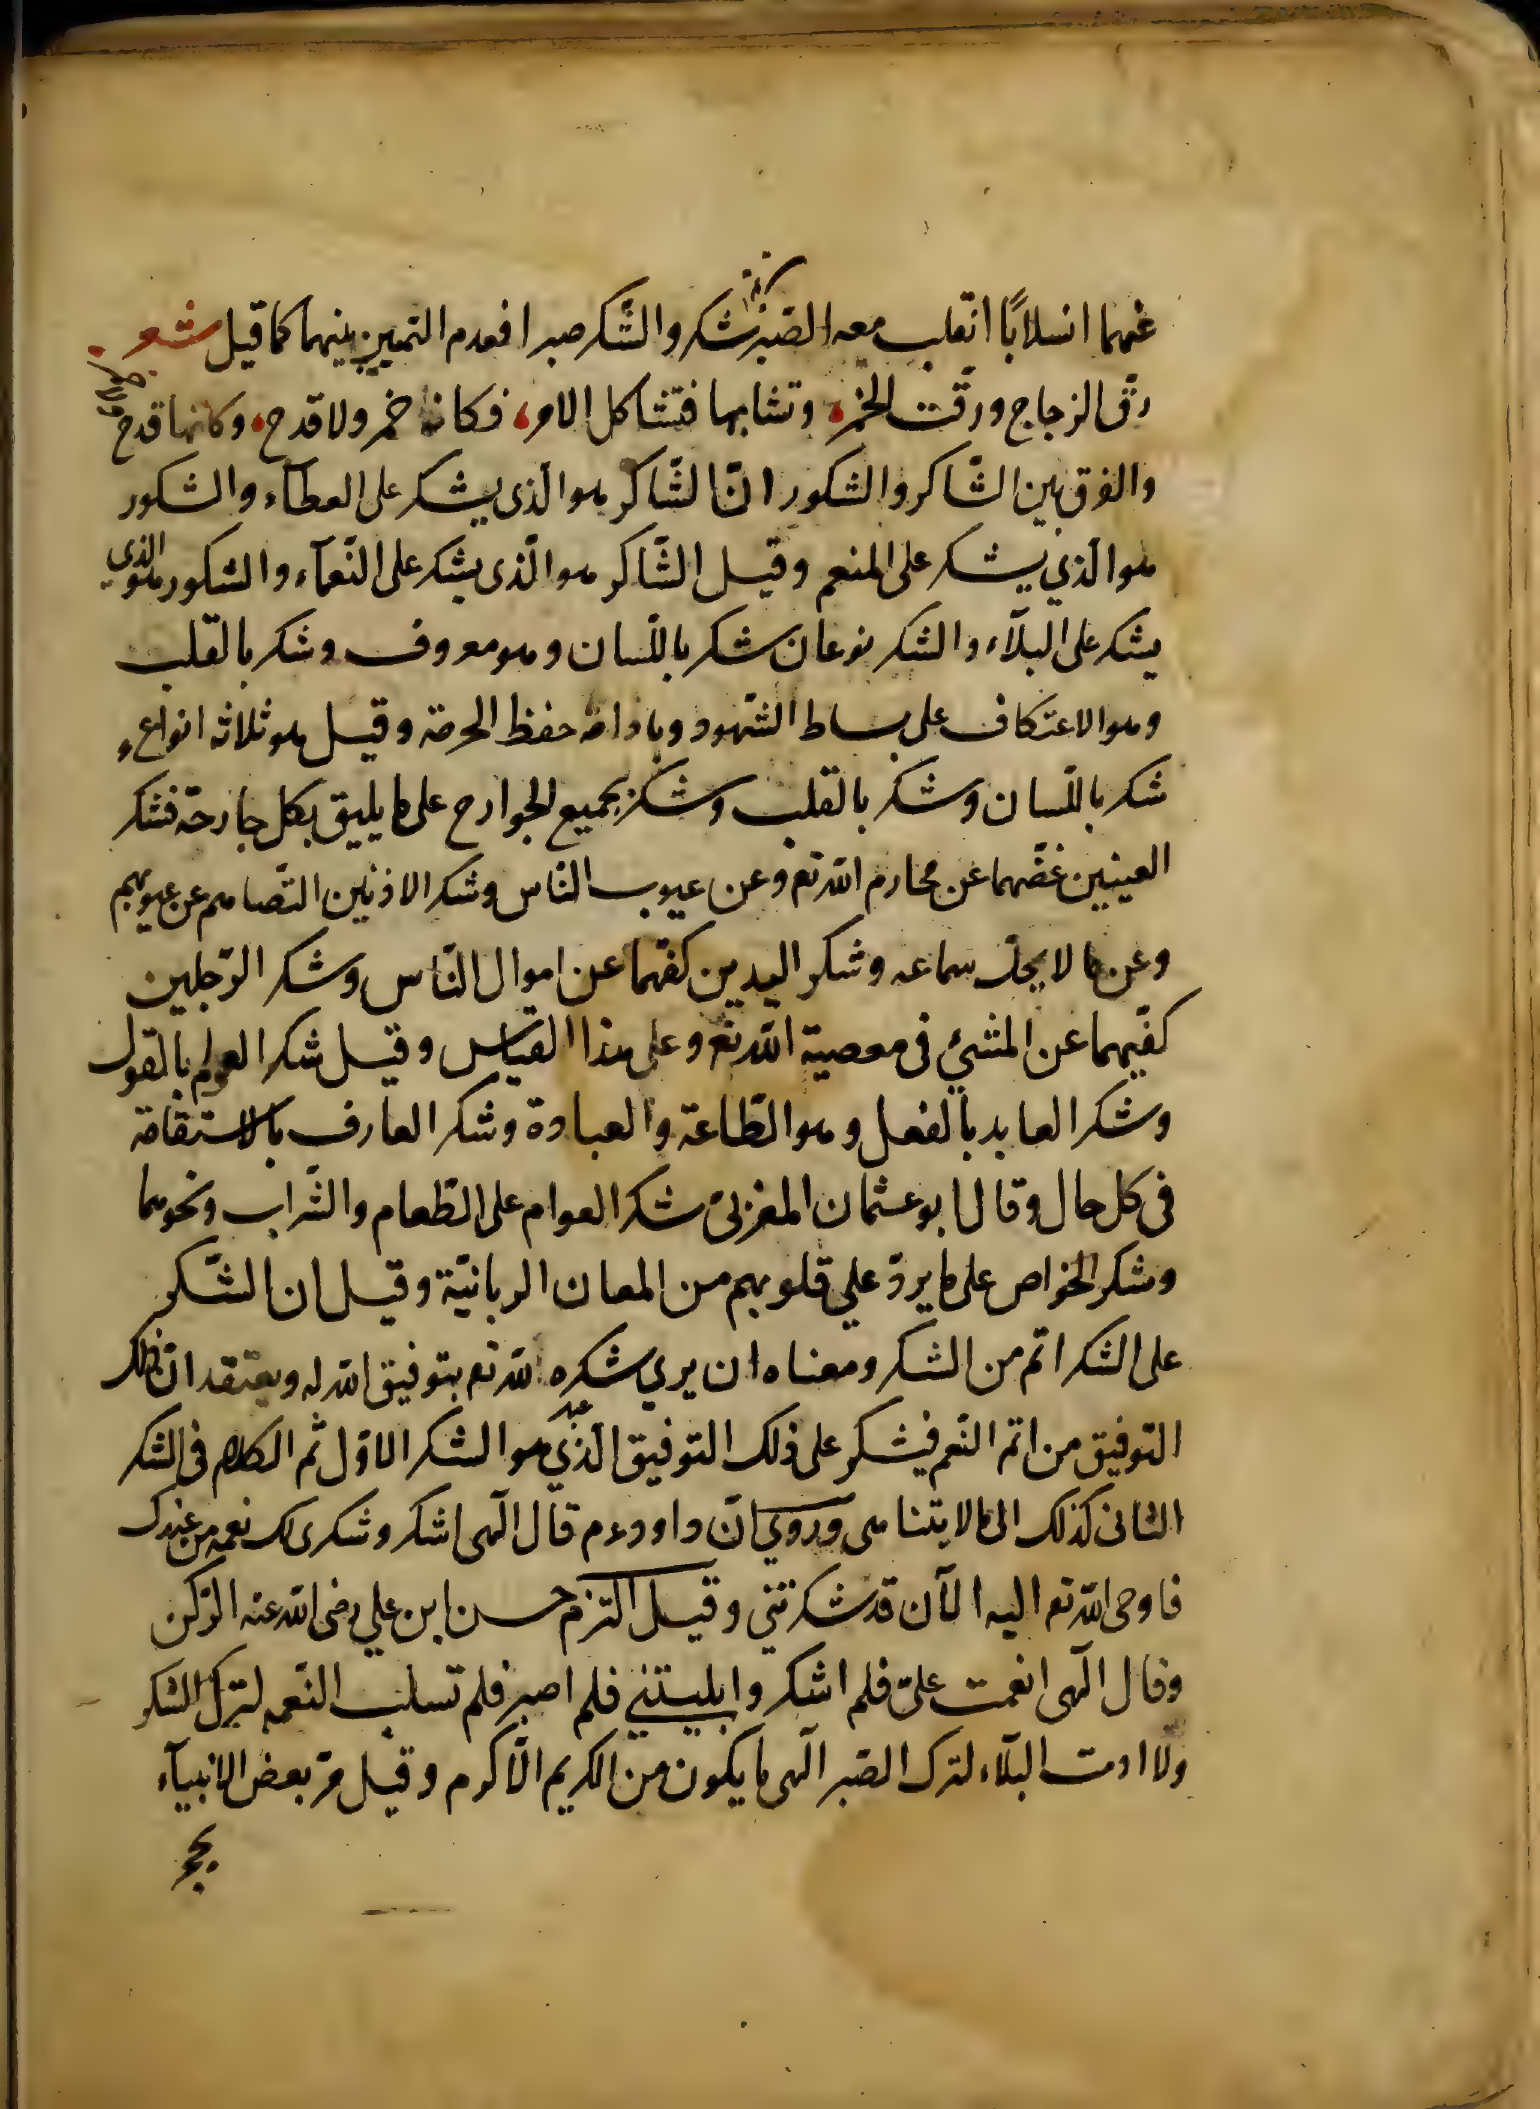 عنهما انسلابًا انقلب معه الصّبر شكر والشّكر صبرا فعدم التمييز بينهما كما قيل شعر
رقّ الزجاج ورقّت الخمر، وتشابها فتشاكل الامر، فكانما خمر ولا قدح، وكانما قدح ولا خمر
والفرق بين الشّاكر والشكور انّ الشّاكر هوا لذى يشكر على العطآء والشكور
هوا لّذي يشكر على المنعم وقيل الشّاكر هوا لّذى يشكر على النّعمآء والشكور هو الذي
يشكر على البلآء والشكر نوعان شكر باللّسان وهو معروف وشكر بالقلب
وهوا لاعتكاف على بساط الشّهود وبادامة حفظ الحرمة وقيل هو ثلاثه انواع
شكر باللّسان وشكر بالقلب وشكر بجميع الجوارح على ما يليق بكل جارحّة فشكر
العينين غضّهما عن محارم اللّه تع وعن عيوب النّاس وشكر الاذنين التّصامم عن عيوبهم
وعن ما لا يحلّ سماعه وشكر اليدين كفّهما عن اموال النّاس وشكر الرّجلين
كفّهما عن المشي فى معصية اللّه تع وعلى هذا القياس وقيل شكر العوام بالقول
وشكر العابد بالفعل وهوا لطّاعة والعبادة وشكر العارف بالاستقامة
فى كل حال وقال ابو عثمان المغربىّ شكر العوام على الطّعام والشّراب ونحوهما
وشكر الخواص على ما يردّ علي قلوبهم من المعان الربانيّة وقيل ان الشّكر
على الشكر اتم من الشكر ومعناه ان يري شكره للّه تع بتوفيق اللّه له ويعتقد انّ ذلك
التوفيق من اتم النّعم فيشكر على ذلك التوفيق الّذي هو الشكر الاوّل ثم الكلام فى الشكر
الثانى كذلك الى ما لا يتناهى وروي انّ داود عم قال الّهى اشكر وشكرى لك نعمه من عندك
فاوحى اللّه تع اليه الآن قد شكرتني وقيل التزم حسن ابن علي رضى اللّه عنه الرّكن
وقال الّهى انعمت علىّ فلم اشكر وابليتني فلم اصبر فلم تسلب النّعمه لترك الشكر
ولا ادمت البلآء لترك الصّبر الّهى ما يكون من الكريم الّا كرم وقيل مرّ بعض الانبيآء
بحجر